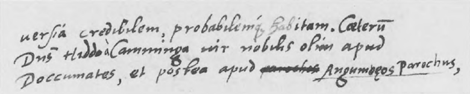 uersiâ credibilem, probabilemq̃ habitam. Cæterũ
Dns̃ Hiddo à Camminga uir nobilis olim apud
Doccumates, et postea apud parochos Angumẽos Parochus,